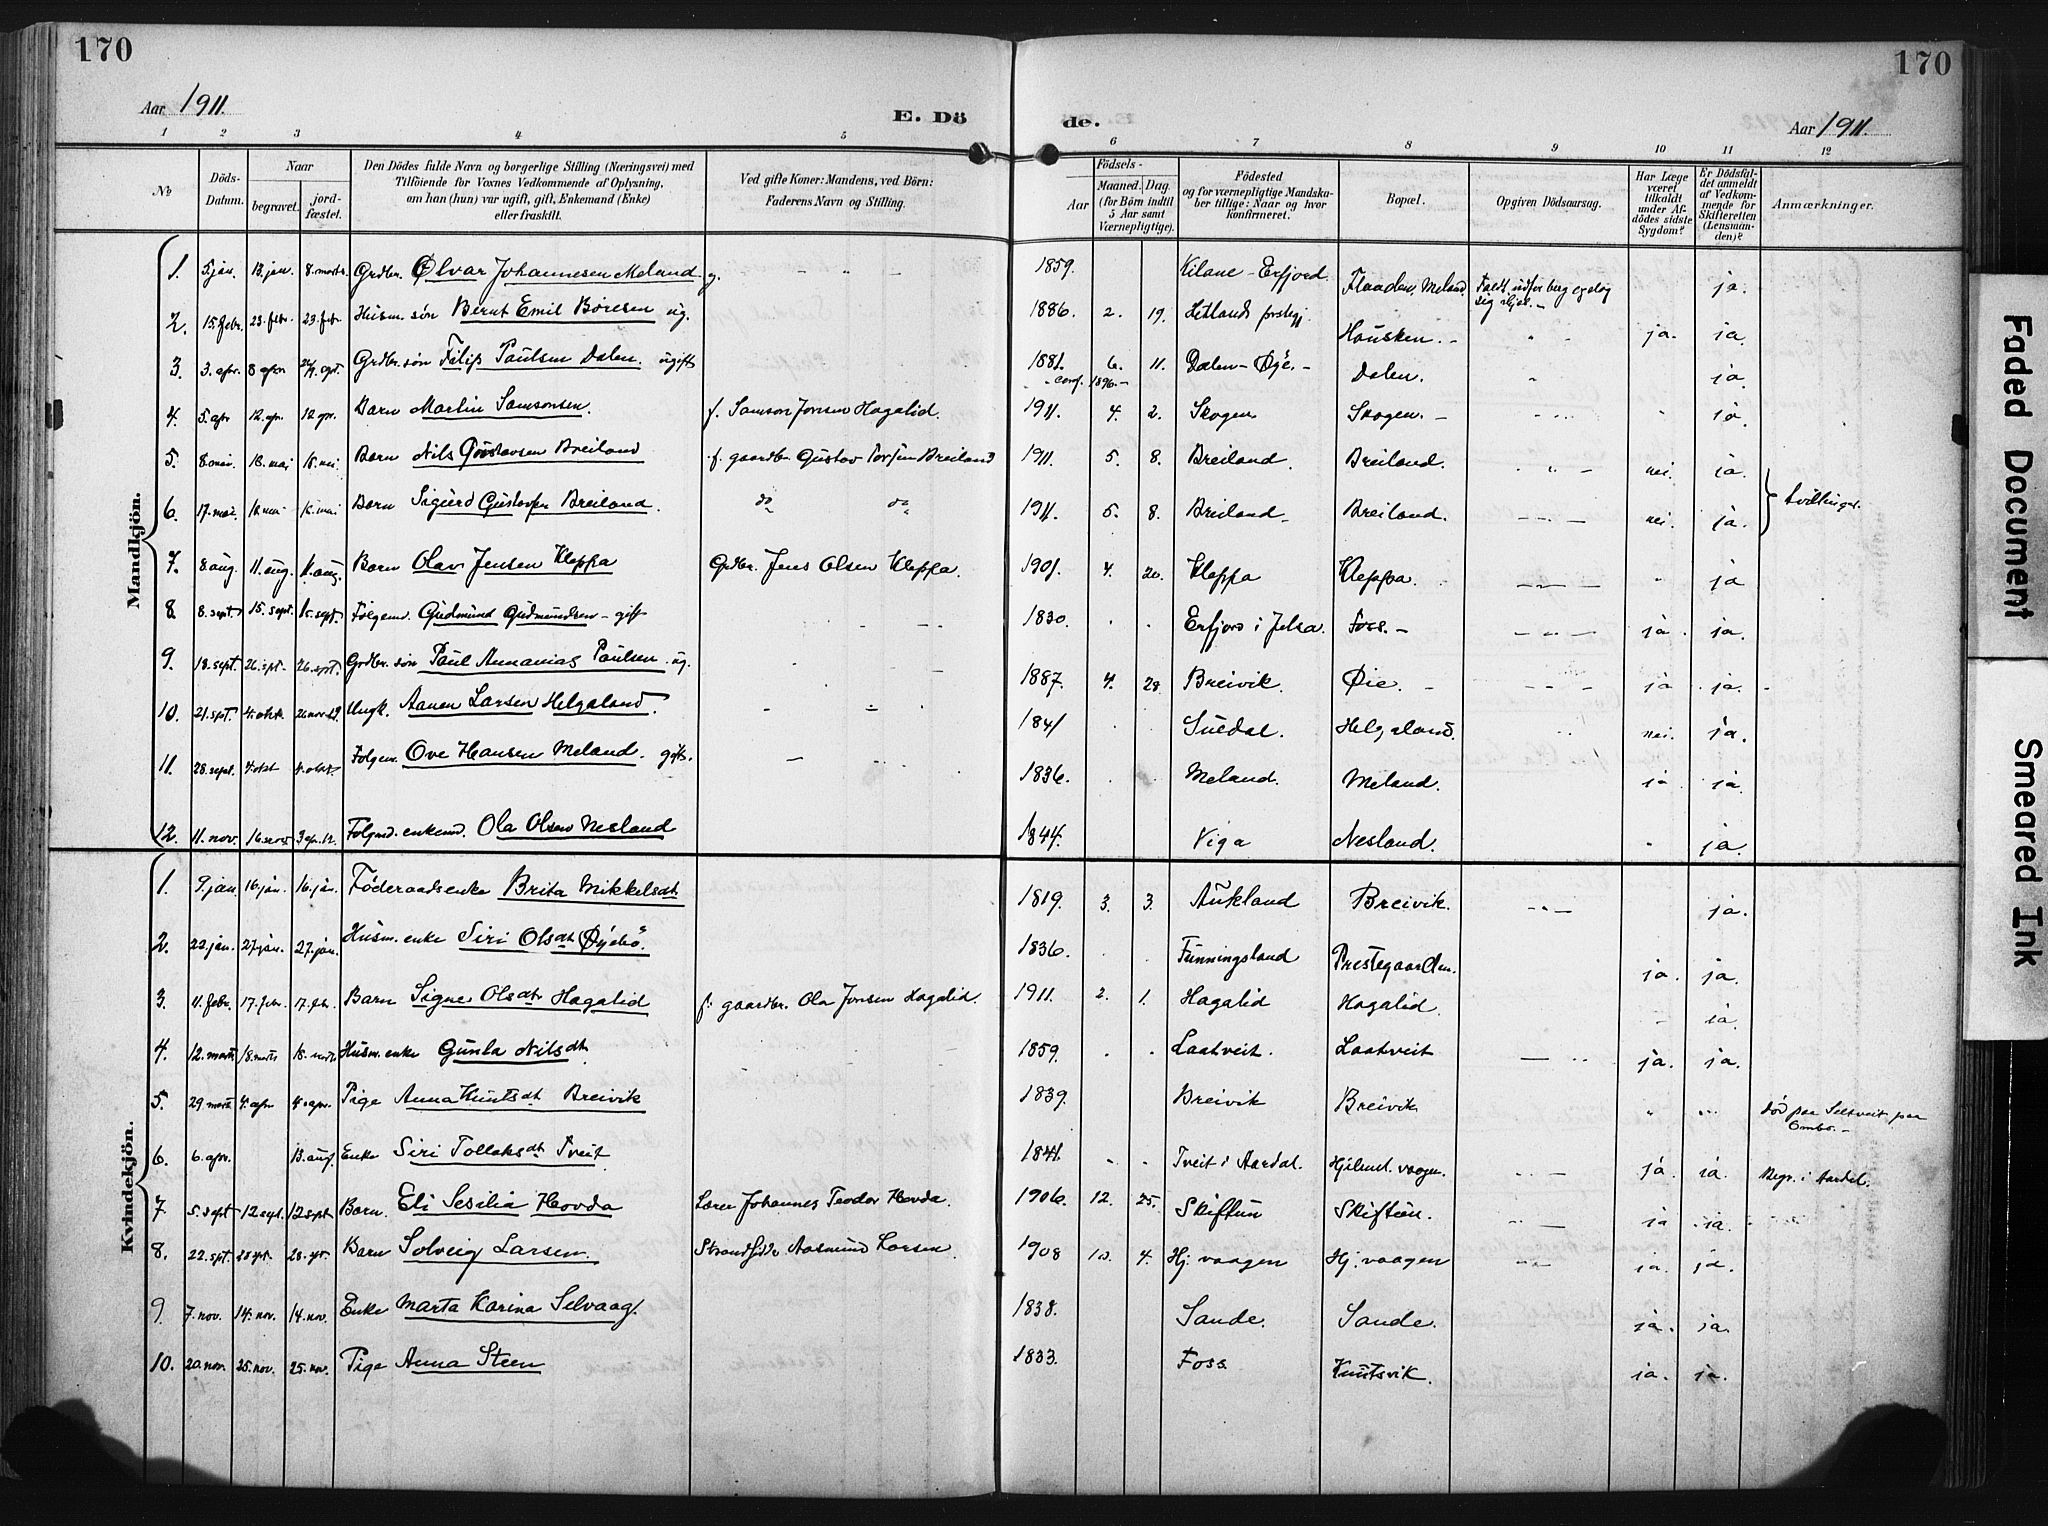 170
170
Aar 1911.
E. Dö
de.
Aar 1911.
1 2 3 4 5 6 7 8 9 10 11 12
No
Döds-Datum.
Naar
begravet.
jord-fæstet.
Den Dödes fulde Navn og borgerlige Stilling (Næringsvei) med
Tilföiende for Voxnes Vedkommende af Oplysning,
om han (hun) var ugift, gift, Enkemand (Enke)
eller fraskilt.
Ved gifte Koner: Mandens, ved Börn:
Faderens Navn og Stilling.
Födsels-
Aar
Maaned. Dag.
(for Börn indtil
5 Aar samt
Værnepligtige).
Födested
og for værnepligtige Mandska-
ber tillige: Naar og hvor
konfirmeret.
Bopæl.
Opgiven Dödsaarsag.
Har Læge
været
tilkaldt
under Af-
dödes sidste
Sygdom?
Er Dödsfal-
det anmeldt
af Vedkom-
mende for
Skifteretten
(Lensman-
den)?
Anmærkninger.
Mandkjön.
1. 5 jan. 13. jan. 8. marts. Grdbr. Ølvar Johannesen Meland g. 1859. Kilane - Erfjord. Flaaden, Meland. Faldt udfor berg og slog sig ihjel. - ja.
2. 15. febr. 23. febr. 23. febr Husm. søn Bernt Emil Børesen ug. 1886. 2. 19. Hetlands prestegj. Hausken. - ja. ja.
3. 3. apr. 8 apr Grdbr. søn Filip Paulsen Dalen. ugift 1881. 6. 11. Dalen - Øye. - Dalen. ja
- conf. 1896. -
4. 5. apr 12. apr. 12 apr. Barn Martin Samsonsen. f. Samson Jonsen Hagalid. 1911. 4. 2. Skogen Skogen. - ja.
5. 8. mai. 18. mai 18. mai. Barn Nils Gustavsen Breiland f. gaardbr. Gustav Breiland 1911. 5. 8. Breiland. Breiland. nei. ja.
6. 17. mai. 18. mai 18. mai Barn Sigurd Gustavsen Breiland. do do 1911. 5. 8. Breiland - Breiland. nei. ja. } tvillinger.
7. 8. aug. 11. aug. 11. aug. Barn Olav Jensen Kleppa Grdbr. Jens Olsen Kleppa. 1901. 4. 20. Kleppa Kleppa. ja
8. 8. sept. 15. sept. 15. sept. Følgem. Gudmund Gudmundsen - gift 1830. Erfjord i Jelsa. Foss. - ja. ja.
9. 18. sept. 26. spt. 26. sept. Grdbr. søn Paul Annanias Paulsen. ug. 1887. 4. 28. Breivik. Øie. - ja ja.
10. 21. spt. 4. okt. 26 nov. Ungk. Aanen Larsen Helgaland. 1841 Suldal. Helgaland. nei. ja.
11. 28. sept. 4. okt 4. okt. Følgem. Ove Hansen Meland. gift. 1836. Meland. Meland. ja ja.
12. 11. nov. 3 apr. 12. Følgmd. enkemd. Ola Olsen Nesland 1844. Viga Nesland. ja.
Kvindekjön.
1. 9. jan. 16. jan. 16. jan. Føderaadsenke Brita Mikkelsdt. 1819. 3. 3. Aukland Breivik. ja.
2. 22. jan. 27. jan. 27. jan. Husm. enke Siri Olsdt. Øyebø. 1836. Funningsland Prestegaarden. ja. ja.
3. 11. febr. 17. febr. 17. febr. Barn Signe Olsdt. Hagalid f. gaardbr. Ola Jonsen Hagalid. 1911. 2. 1. Hagalid Hagalid. ja.
4. 12. marts 18. marts 18. marts Husm. enke Gunla Nilsdt. 1859. Laatveit. Laatveit ja. ja.
5. 29 marts 4. apr 4. apr. Pige Anna Knutsdt. Breivik 1839. Breivik Breivik Død paa Seltveit paa Ombo. -
6. 6. apr. 13. aug. Enke Siri Tollaksdt. Tveit 1841. Tveit i Aardal. Hjelmel. vaagen. ja. ja. Begr. i Aardal.
7. 5. sept 12 sept. 12 sept Barn. Eli Sesilia Hovda Lærer Johannes Teodor Hovda. 1906. 12. 25. Skiftun Skiftun. ja ja.
8. 22. spt. 28 spt. 28. spt. Barn Solveig Larsen. Strandsidder Aasmund Larsen. 1908 10. 4. Hj. vaagen Hj. vaagen ja. ja.
9 7. nov. 14. nov. 14 nov. Enke Marta Karina Selvaag. 1838. Sande. Sande. ja. ja.
10. 20. nov. 25. nov. 25. nov. Pige Anna Steen 1833. Foss. Knutsvik. ja. ja.
Faded Document
Smeared Ink